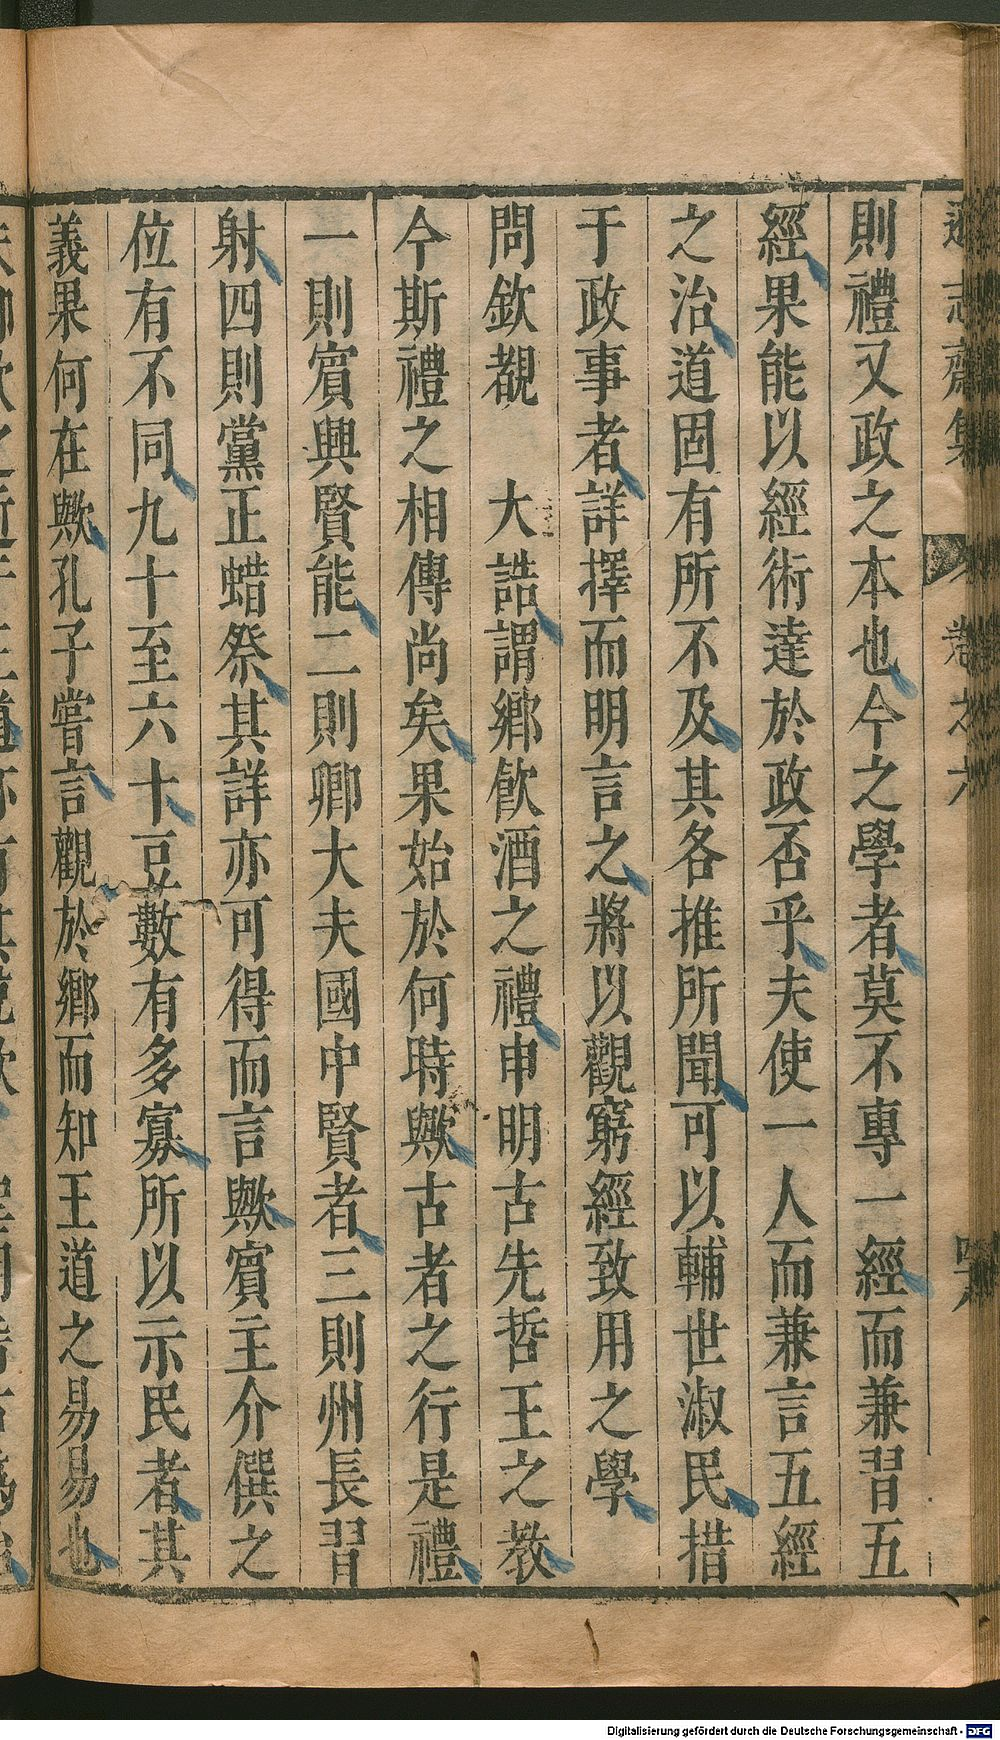 則禮又政之本也今之學者莫不專一經而兼習五
經果能以經術達於政否乎夫使一人而兼言五經
之治道固有所不及其各推所聞可以輔世淑民措
于政事者詳擇而明言之將以觀窮經致用之學
問欽覩　大誥謂鄉飲酒之禮申明古先哲王之教
今斯禮之相傳尚矣果始於何時歟古者之行是禮
一則賓興賢能二則卿大夫國中賢者三則州長習
射四則黨正蜡祭其詳亦可得而言歟賓主介僎之
位有不同九十至六十豆數有多寡所以示民者其
義果何在歟孔子嘗言觀於鄉而知王道之易易也
Digitalisierung gefördert durch die Deutsche Forschungsgemeinschaft - DFG